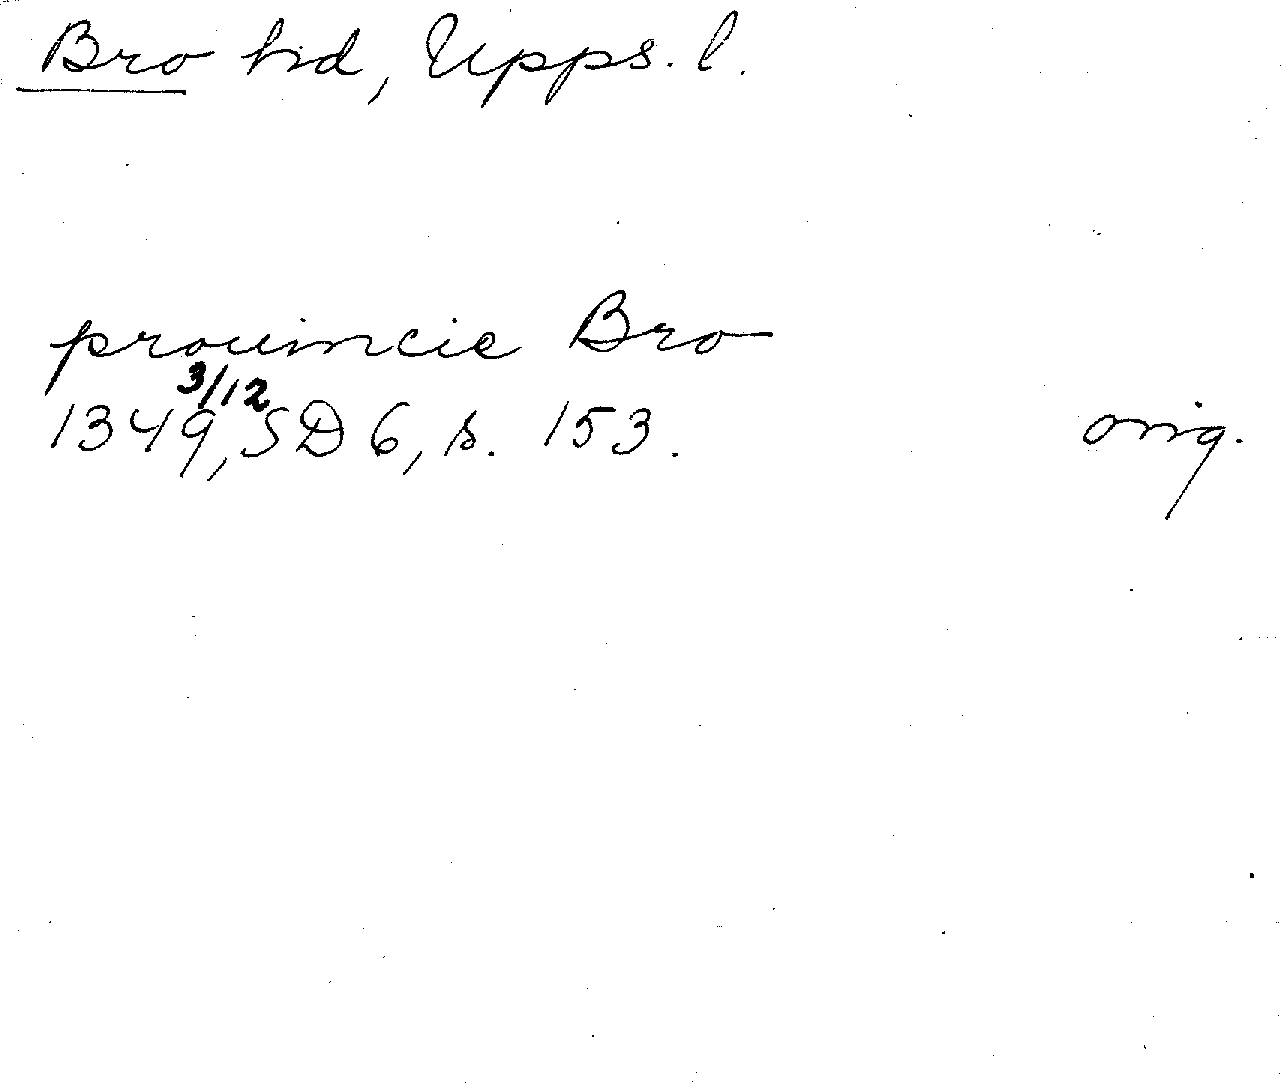 Bro hd, Upps. l.
prouincie Bro
3/12
1349, SD 6, s. 153. orig.